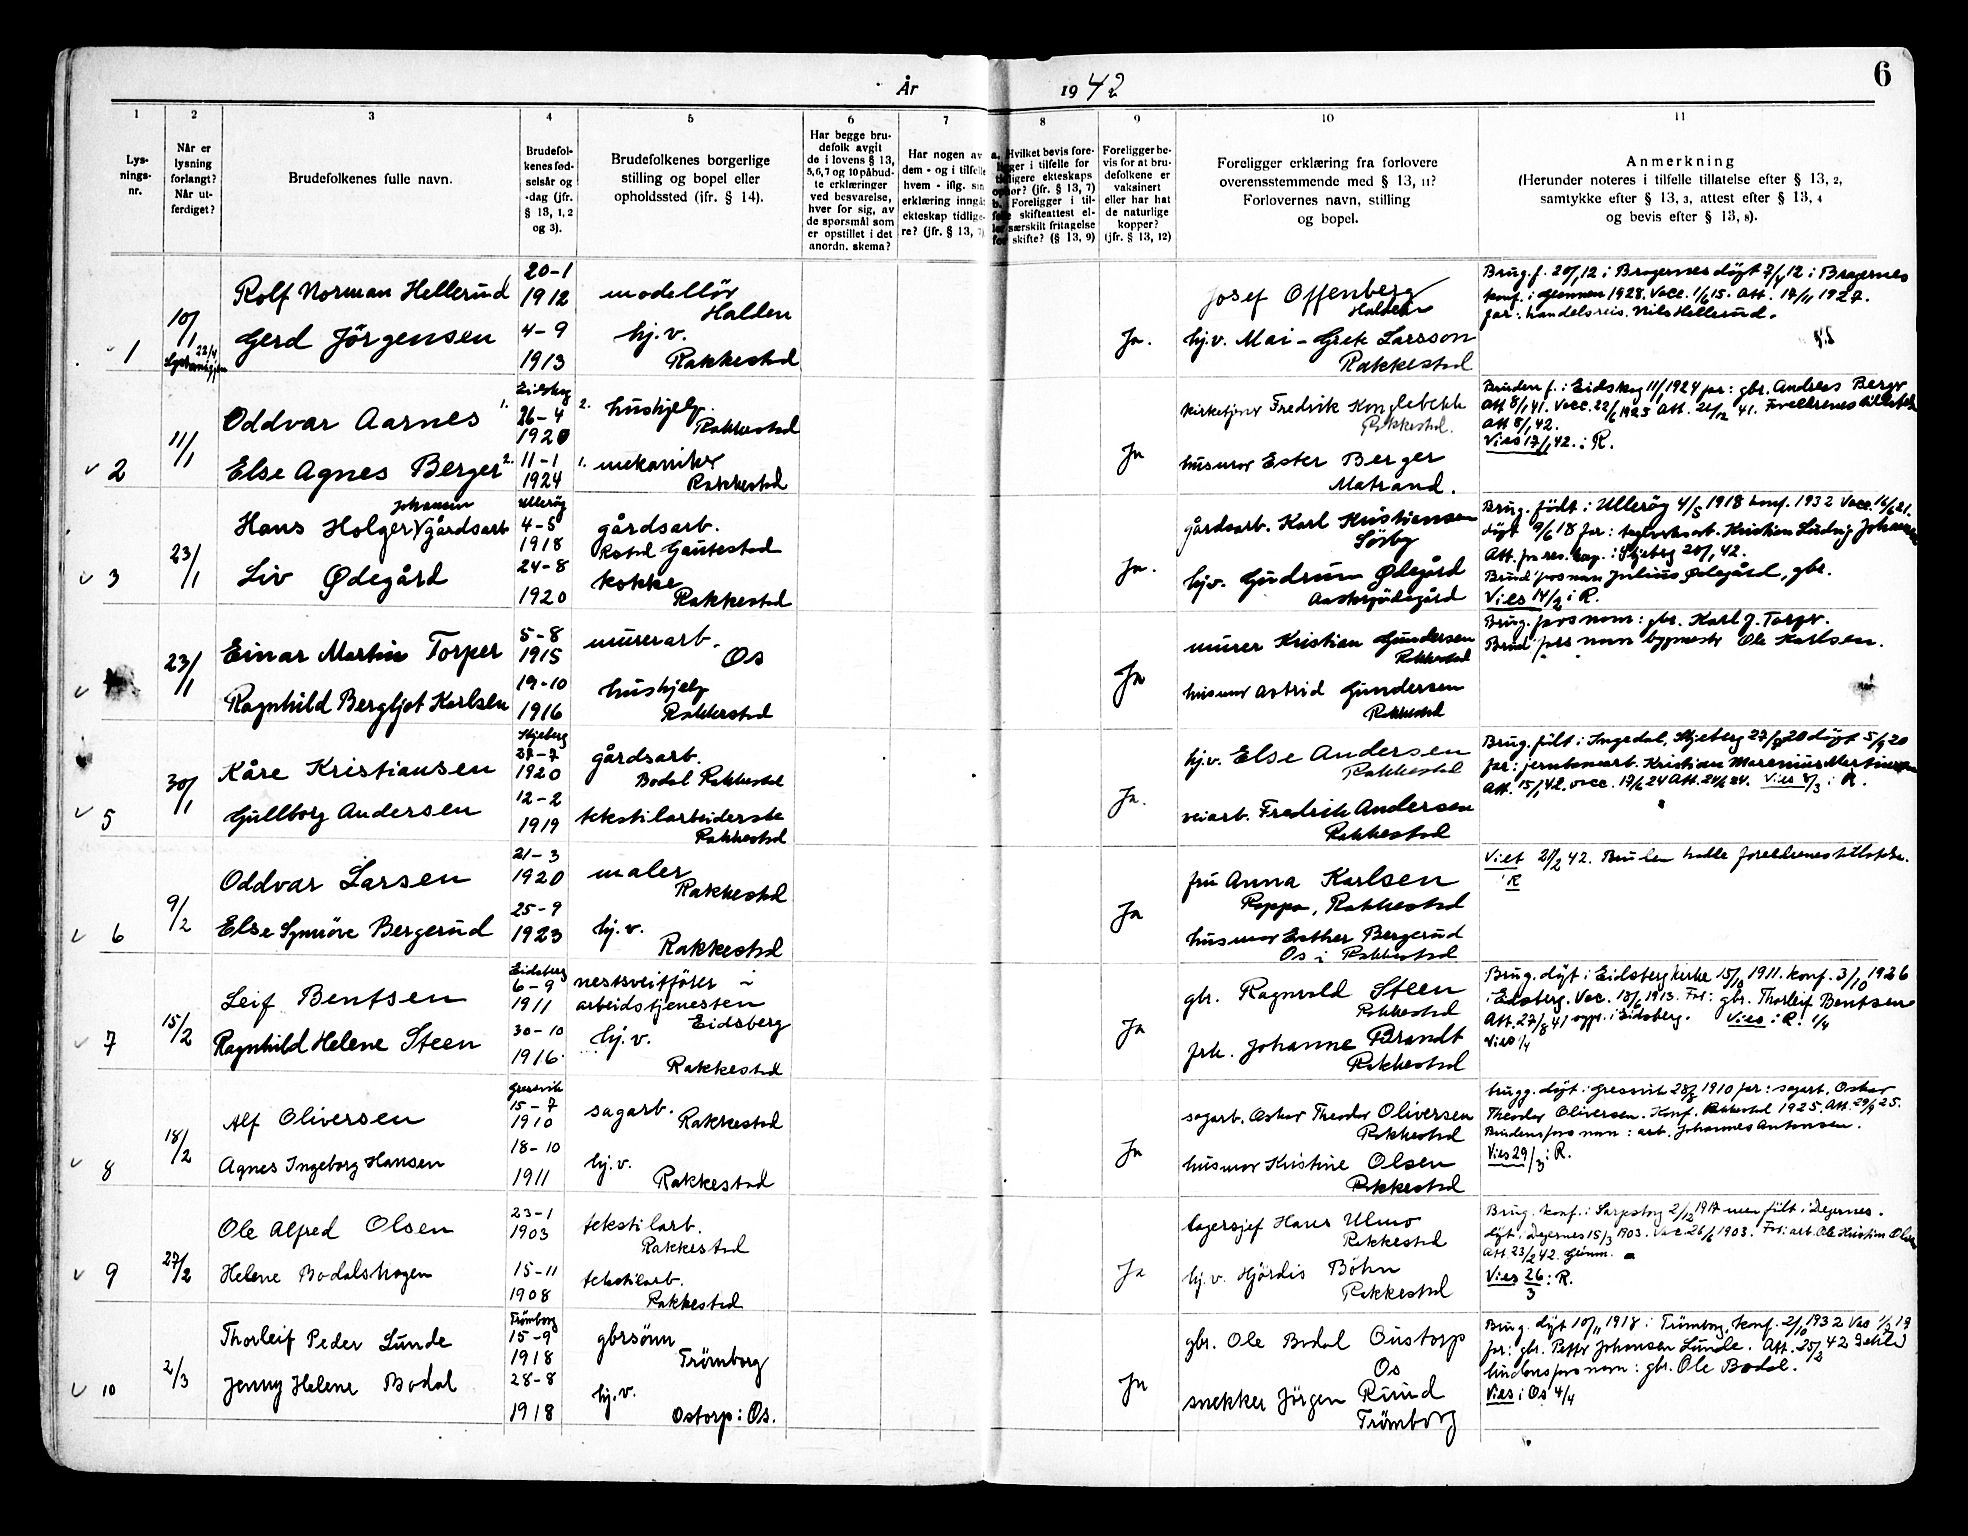 År 1942
6
1 2 3 4 5 6 7 8 9 10 11
Lys-
nings-
nr.
Når er
lysning
forlangt?
Når ut-
ferdiget?
Brudefolkenes fulle navn.
Brudefol-
kenes fød-
selsår og
-dag (jfr.
§ 13, 1, 2
og 3).
Brudefolkenes borgerlige
stilling og bopel eller
opholdssted (jfr. § 14).
Har begge bru-
defolk avgit
de i lovens § 13,
5, 6, 7 og 10 påbud-
te erklæringer
ved besvarelse,
hver for sig, av
de spørsmål som
er opstillet i det
anordn. skema?
Har nogen av
dem - og i tilfelle
hvem - iflg. sin
erklæring inngå
ekteskap tidlige-
re? (jfr. § 13, 7)
a. Hvilket bevis fore-
ligger i tilfelle for
tidligere ekteskaps
ophør? (jfr. § 13, 7)
b. Foreligger i til-
felle skifteattest el-
ler særskilt fritagelse
for skifte? (§ 13, 9)
Foreligger be-
vis for at bru-
defolkene er
vaksinert
eller har hat
de naturlige
kopper?
(jfr. § 13, 12)
Foreligger erklæring fra forlovere
overensstemmende med § 13, 11?
Forlovernes navn, stilling
og bopel.
Anmerkning
(Herunder noteres i tilfelle tillatelse efter § 13, 2,
samtykke efter § 13, 3, attest efter § 13, 4
og bevis efter § 13, 8).
1
10/1
22/4
Rolf Norman Hellerud
20-1
1912
modellör
Halden
Gerd Jörgensen
4-9
1913
hj.v.
Rakkestad
Ja.
Josef Offenberg
Halden
hj.v. Mai-Grete Larsson
Rakkestad
Brug. f. 20/1 12 i Bragernes döpt 7/4 12 i Bragernes
konf. i 1928. Vacc. 1/6 15. Att. 17/11 1927.
far: handelsreis. Nils Hellerud.
2
11/1
Oddvar Aarnes 1.
Eidskog
26-4
1920
2. hushjelp
Rakkestad
Else Agnes Berger 2.
11-1
1924
1. mekaniker
Rakkestad
Ja
kirketjener Fredrik Konglebekk
Rakkestad.
husmor Ester Berger
Matrand.
Bruden f. i Eidskog 11/1 1924 far: gbr. Andreas Berger
Att. 8/1 41. Vacc. 22/6 1925 Att. 22/12 41. Foreldrenes tillatelse
Att 8/1 42.
Vies 17/1 42. i R.
3
23/1
Johansen
Hans Holger gårdsarb
Ullerøy
4-5
1918
gårdsarb.
Rstad Gautestad
Liv Ødegård
24-8
1920
kokke
Rakkestad
Ja.
gårdsarb. Karl Kristiansen
Sørby
hj.v. Gudrun Ødegård
Brug. födt i Ullerøy 4/5 1918 konf. 1932 Vacc. 16/6 21.
döpt 9/6 18 far: teglverksarb. Kristian Ludvig Johansen
Att. fra res. kap. i Skjeberg 20/1 42.
Brud. fars navn Julius Ødegård, gbr.
Vies 14/2 i R.
23/1
Einar Martin Torper
5-8
1915
murerarb.
Os
Ragnhild Bergljot Karlsen
19-10
1916
hushjelp
Rakkestad
Ja
murer Kristian Gundersen
Rakkestad
husmor Astrid Gundersen
Rakkestad
Brug. fars navn: gbr. Karl J. Torper.
Brud. fars navn bygmestr Ole Karlsen.
5
30/1
Kåre Kristiansen
Skjeberg
27-7
1920
gårdsarb.
Bodal Rakkestad
Gullborg Andersen
12-2
1919
tekstilarbeiderske
Rakkestad
Ja.
hj.v. Else Andersen
Rakkestad
veiarb. Fredrik Andersen
Rakkestad
Brug. födt i Ingedal, Skjeberg 27/7 20 döpt 5/9 20
far: jernbanearb. Kristian Marenius Martinsen
Att. 15/1 42. vacc. 17/6 24 Att. 24/6 24. Vies 8/3 i R.
6
9/2
Oddvar Larsen
21-3
1920
maler
Rakkestad
Else Synnöve Bergerud
25-9
1923
hj.v.
Rakkestad
Ja
fru Anna Karlsen
Rakkestad
husmor Esther Bergerud
Os i Rakkestad
Viet 21/2 42. Bruden hadde foreldrenes tillatelse.
i R
7
15/2
Leif Bentsen
Eidsberg
6-9
1911
nestsveitförer i
arbeidstjenesten
Eidsberg
Ragnhild Helene Steen
30-10
1916
hj.v.
Rakkestad
Ja
gbr. Ragnvald Steen
Rakkestad
frk. Johanne Brandt
Rakkestad
Brug. döpt i Eidsberg kirke 15/10 1911. konf. 3/10 1926
i Eidsberg. Vac. 18/6 1913. Far: gbr. Thorleif Bentsen
Att. 27/8 41 i Eidsberg. Vies i R. 1/4
Vies 1/4
8
18/2
Alf Oliversen
Gressvik
15-7
1910
sagarb.
Rakkestad
Agnes Ingeborg Hansen
18-10
1911
hj.v.
Rakkestad
Ja
sagarb. Oskar Theodor Oliversen
Rakkestad
husmor Kristine Olsen
Rakkestad
brugg. döpt i Gressvik 28/8 1910 far: sagarb. Oskar
Theodor Oliversen. Konf. Rakkestad 1925. Att. 29/9 25.
Brudens fars navn: arb. Johannes Antonsen.
Vies 29/3 i R.
9
27/2
Ole Alfred Olsen
23-1
1903
tekstilarb.
Rakkestad
Helene Bodalshagen
15-11
1908
tekstilarb.
Rakkestad
Ja
lagersjef Hans Ulmo
Rakkestad
hj.v. Hjördis Böhn
Rakkestad
Brug. konf. i Sarpsborg 2/12 1917 men födt i Degernes.
döpt i Degernes 15/3 1903. Vac. 26/6 1903. Far: arb. Ole Kristian Olsen
Att. 23/2 42.
Vies 26/3 i R.
10
2/3
Thorleif Peder Lunde
Trömborg
15-9
1918
gbrsönn
Trömborg
Jenny Helene Bodal
28-8
1918
hj.v.
Ostorp i Os.
Ja
gbr. Ole Bodal Oustorp
Os
snekker Jörgen Ruud
Trömborg
Brug. döpt 10/11 1918 i Trömborg, konf. 2/10 1932 Vac 1/3 19
far: gbr. Petter Johansen Lunde. Att. 25/2 42
brudens fars navn: gbr. Ole Bodal.
Vies i Os 4/4